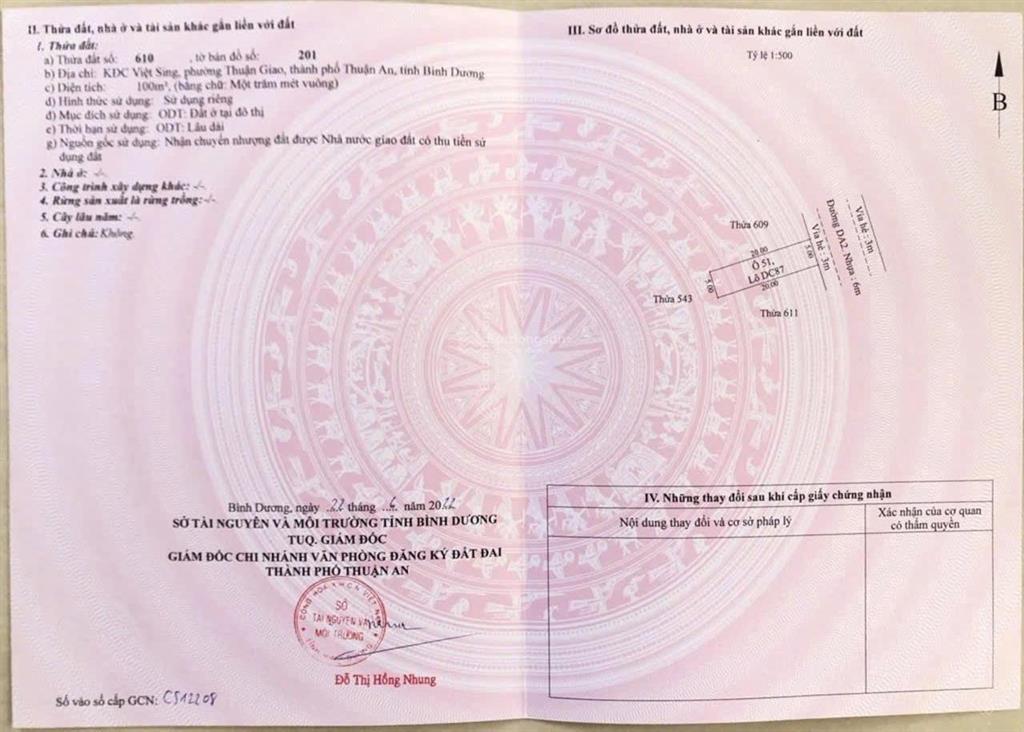 II. Thửa đất, nhà ở và tài sản khác gắn liền với đất
1. Thửa đất:
a) Thửa đất số: 610 , tờ bản đồ số: 201
b) Địa chỉ: KDC Việt Sing, phường Thuận Giao, thành phố Thuận An, tỉnh Bình Dương
c) Diện tích: 100m², (bằng chữ: Một trăm mét vuông)
d) Hình thức sử dụng: Sử dụng riêng
đ) Mục đích sử dụng: ODT: Đất ở tại đô thị
e) Thời hạn sử dụng: ODT: Lâu dài
g) Nguồn gốc sử dụng: Nhận chuyển nhượng đất được Nhà nước giao đất có thu tiền sử
dụng đất
2. Nhà ở: -/-
3. Công trình xây dựng khác: -/-
4. Rừng sản xuất là rừng trồng:-/-
5. Cây lâu năm: -/-
6. Ghi chú: Không.
Bình Dương, ngày 22 tháng 4 năm 2022
SỞ TÀI NGUYÊN VÀ MÔI TRƯỜNG TỈNH BÌNH DƯƠNG
TUQ. GIÁM ĐỐC
GIÁM ĐỐC CHI NHÁNH VĂN PHÒNG ĐĂNG KÝ ĐẤT ĐAI
THÀNH PHỐ THUẬN AN
SỞ
TÀI NGUYÊN VÀ
MÔI TRƯỜNG
Đỗ Thị Hồng Nhung
Số vào sổ cấp GCN: CS12208
III. Sơ đồ thửa đất, nhà ở và tài sản khác gắn liền với đất
Tỷ lệ 1:500
B
Thửa 609
20.00
Ô 51,
Lô DC87
20.00
5.00
5.00
Vỉa hè : 3m
Đường DA2. Nhựa : 6m
Vỉa hè : 3m
Thửa 543
Thửa 611
IV. Những thay đổi sau khi cấp giấy chứng nhận
Nội dung thay đổi và cơ sở pháp lý
Xác nhận của cơ quan
có thẩm quyền